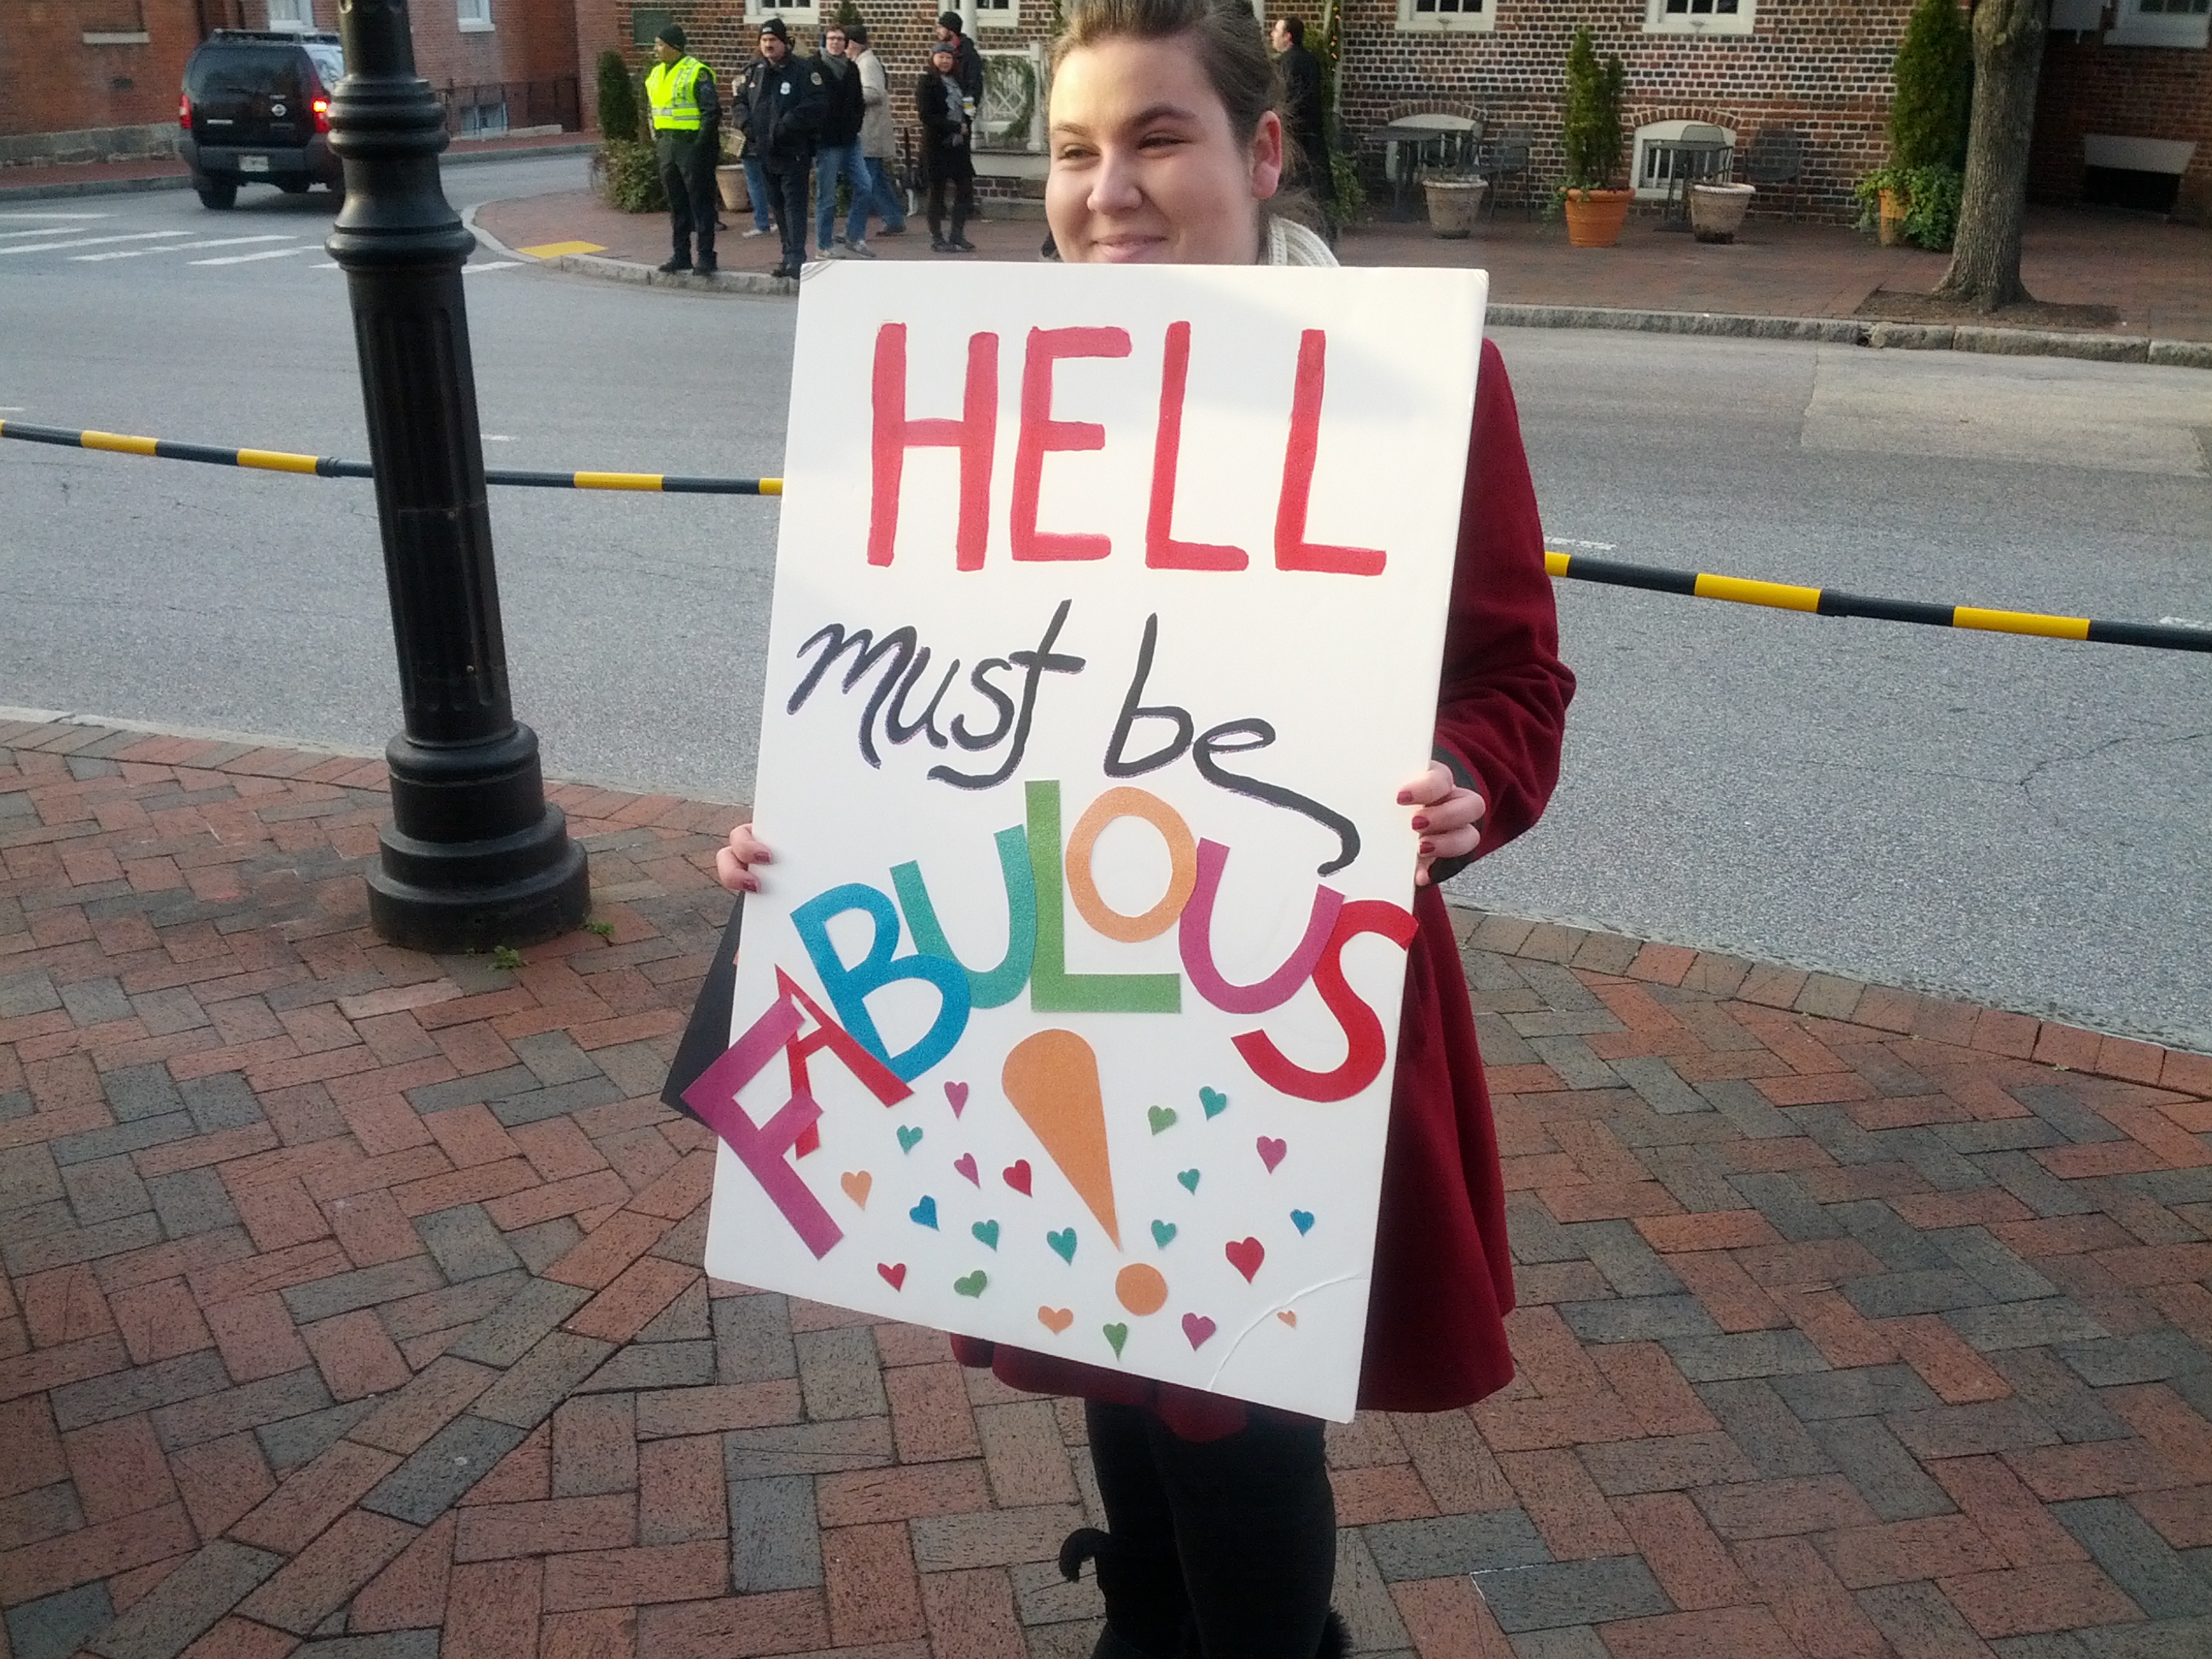 HELL
must be
FABULOUS
!